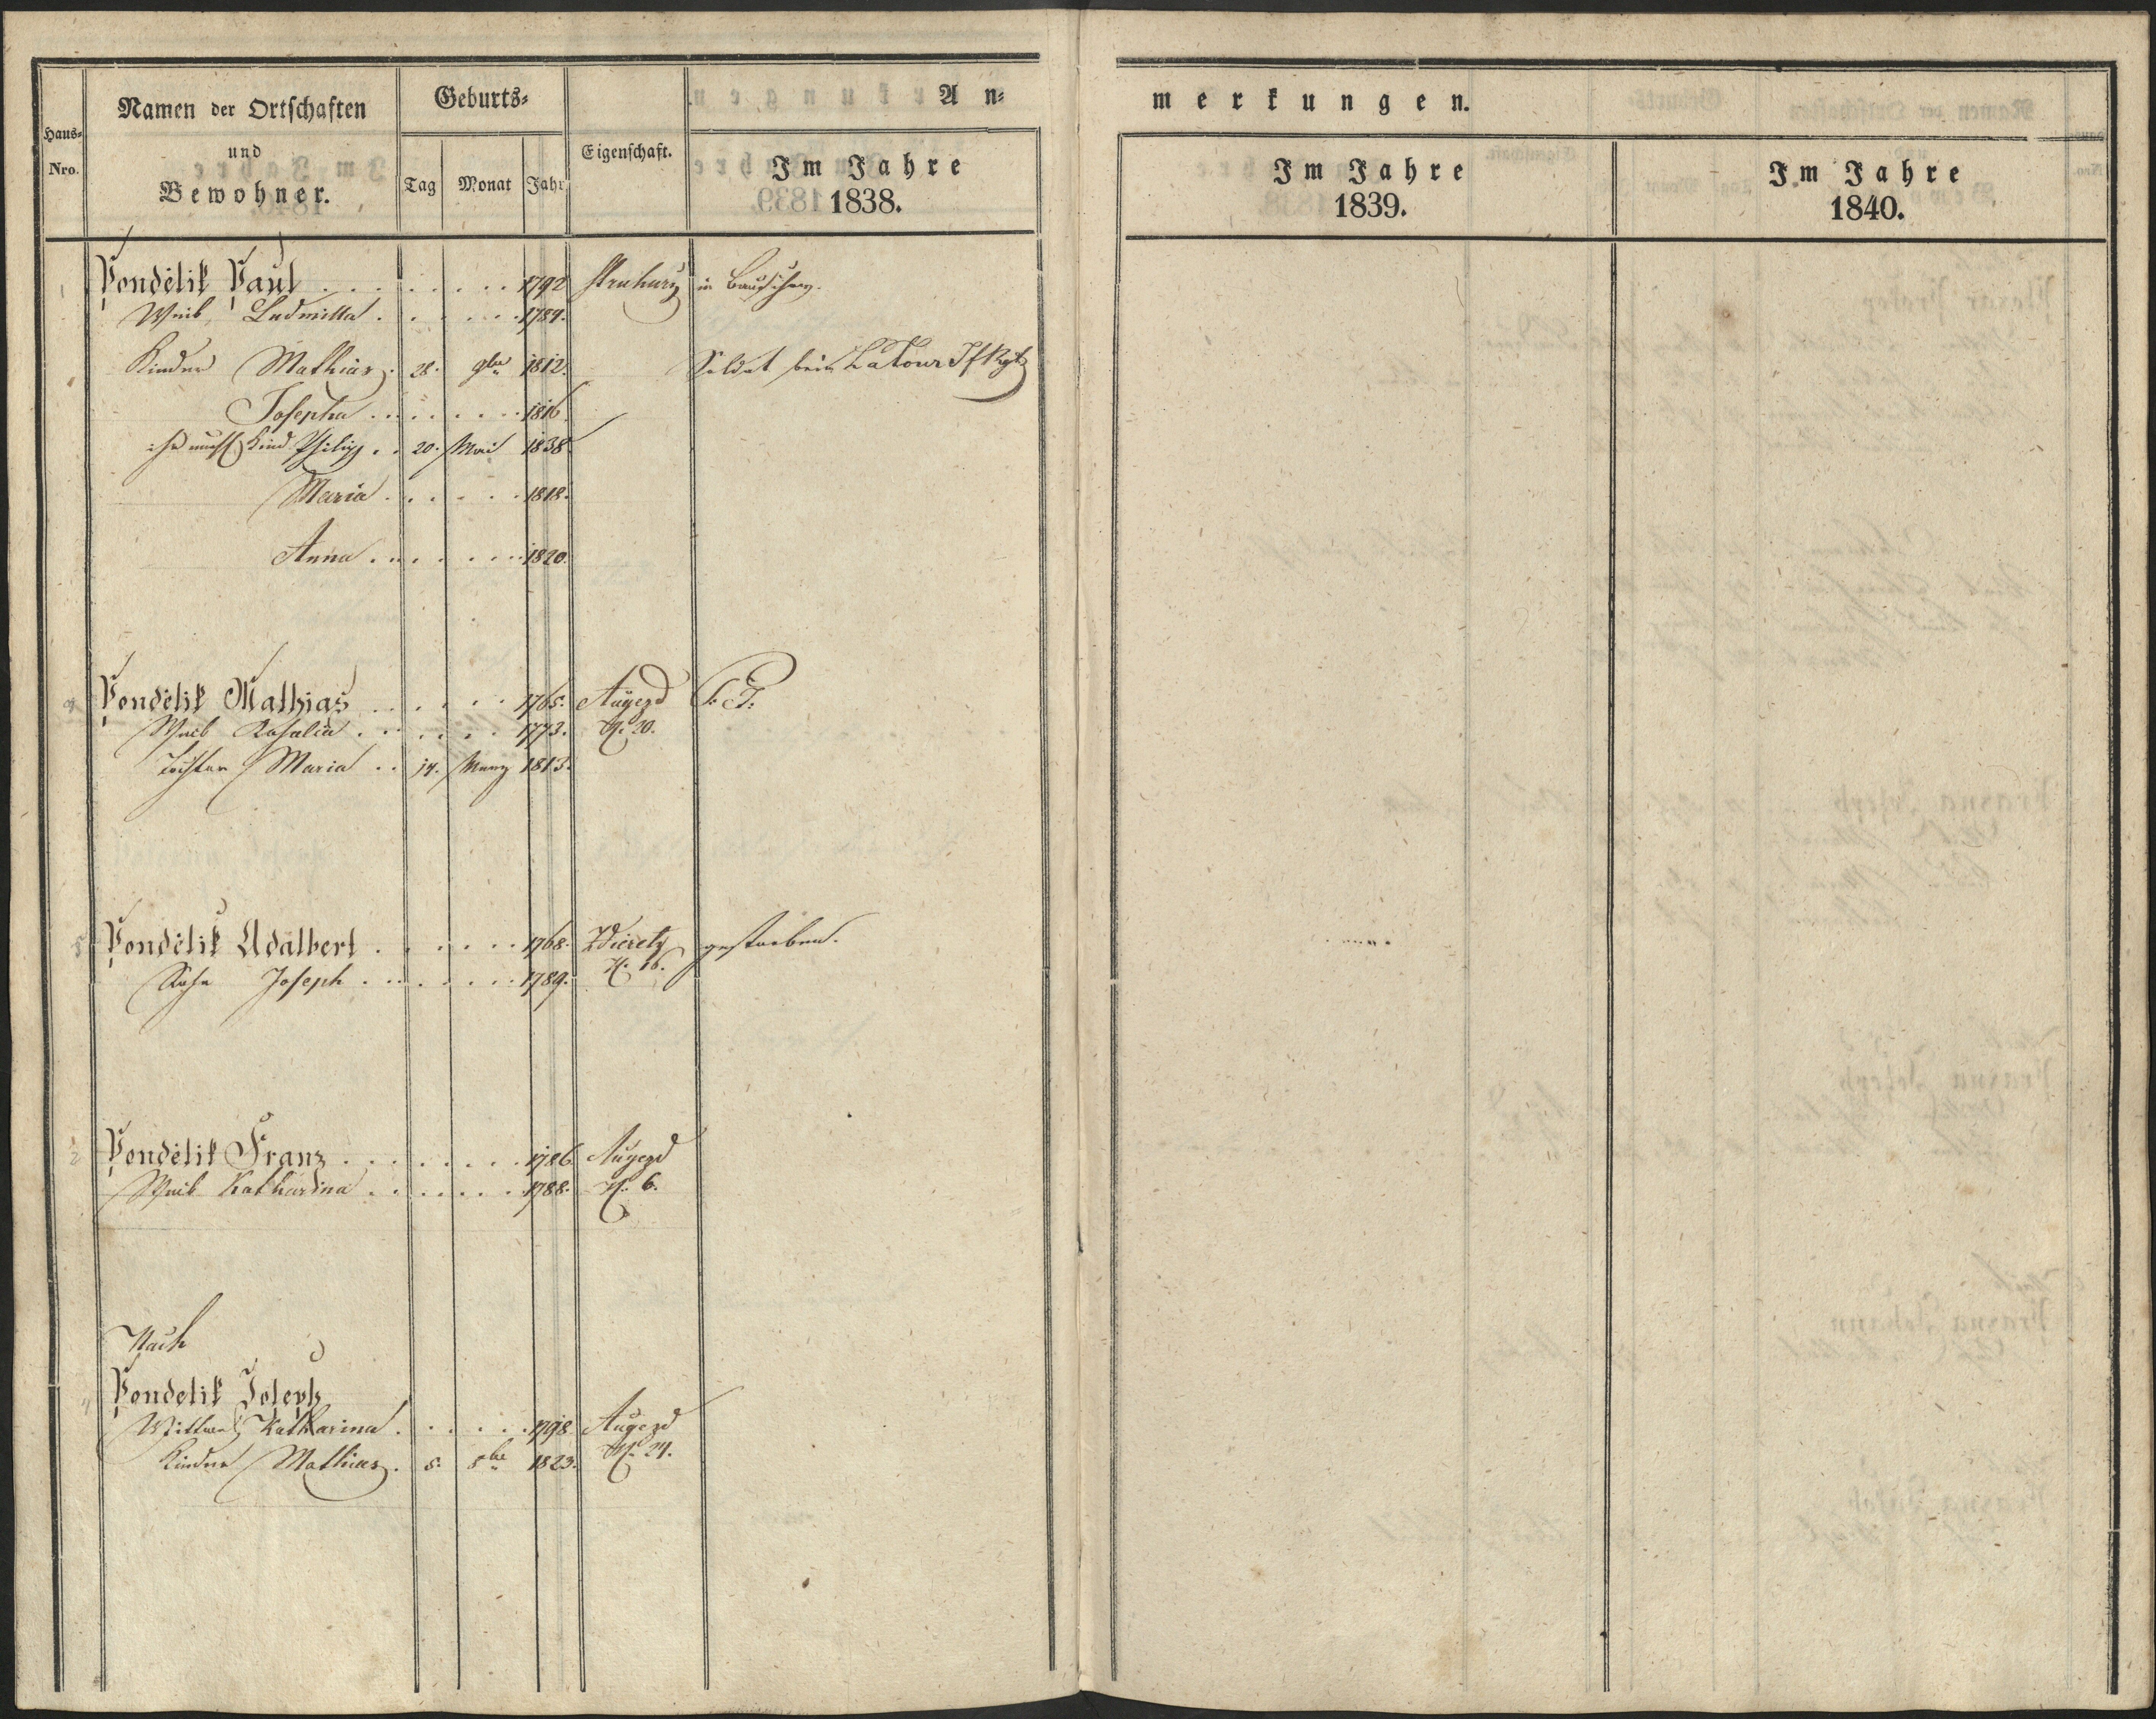 Haus-
Nro.
Namen der Ortschaften
und
Bewohner.
Geburts-
Tag Monat Jahr
Eigenschaft.
An-
Im Jahre
1838.
merkungen.
Im Jahre
1839.
Im Jahre
1840.
Pondělik Paul . . . 1792 in
Weib Ludmilla . . . 1789.
Kinder Mathias . 28. 9ber 1812. Soldat beim Latour IfRgt
Josepha . . . 1816.
Kind Philipp . . 20. Mai 1838
Maria . . . 1818.
Anna . . . 1820.
4 Pondělik Mathias . . . 1765. Augezd
Weib Rosalia . . . 1773. N. 20.
Tochter Maria . . 14. März 1813.
5 Pondělik Adalbert . . . 1768. Zdieretz gestorben.
Sohn Joseph . . . 1789. N. 16.
2 Pondělik Franz . . . 1786 Augezd
Weib Katharina . . . 1788. N. 6.
Nach
Pondelik Joseph
Wittwe Katharina . . . 1798. Augezd
Kinder Mathias . 5. 1823. N. 24.